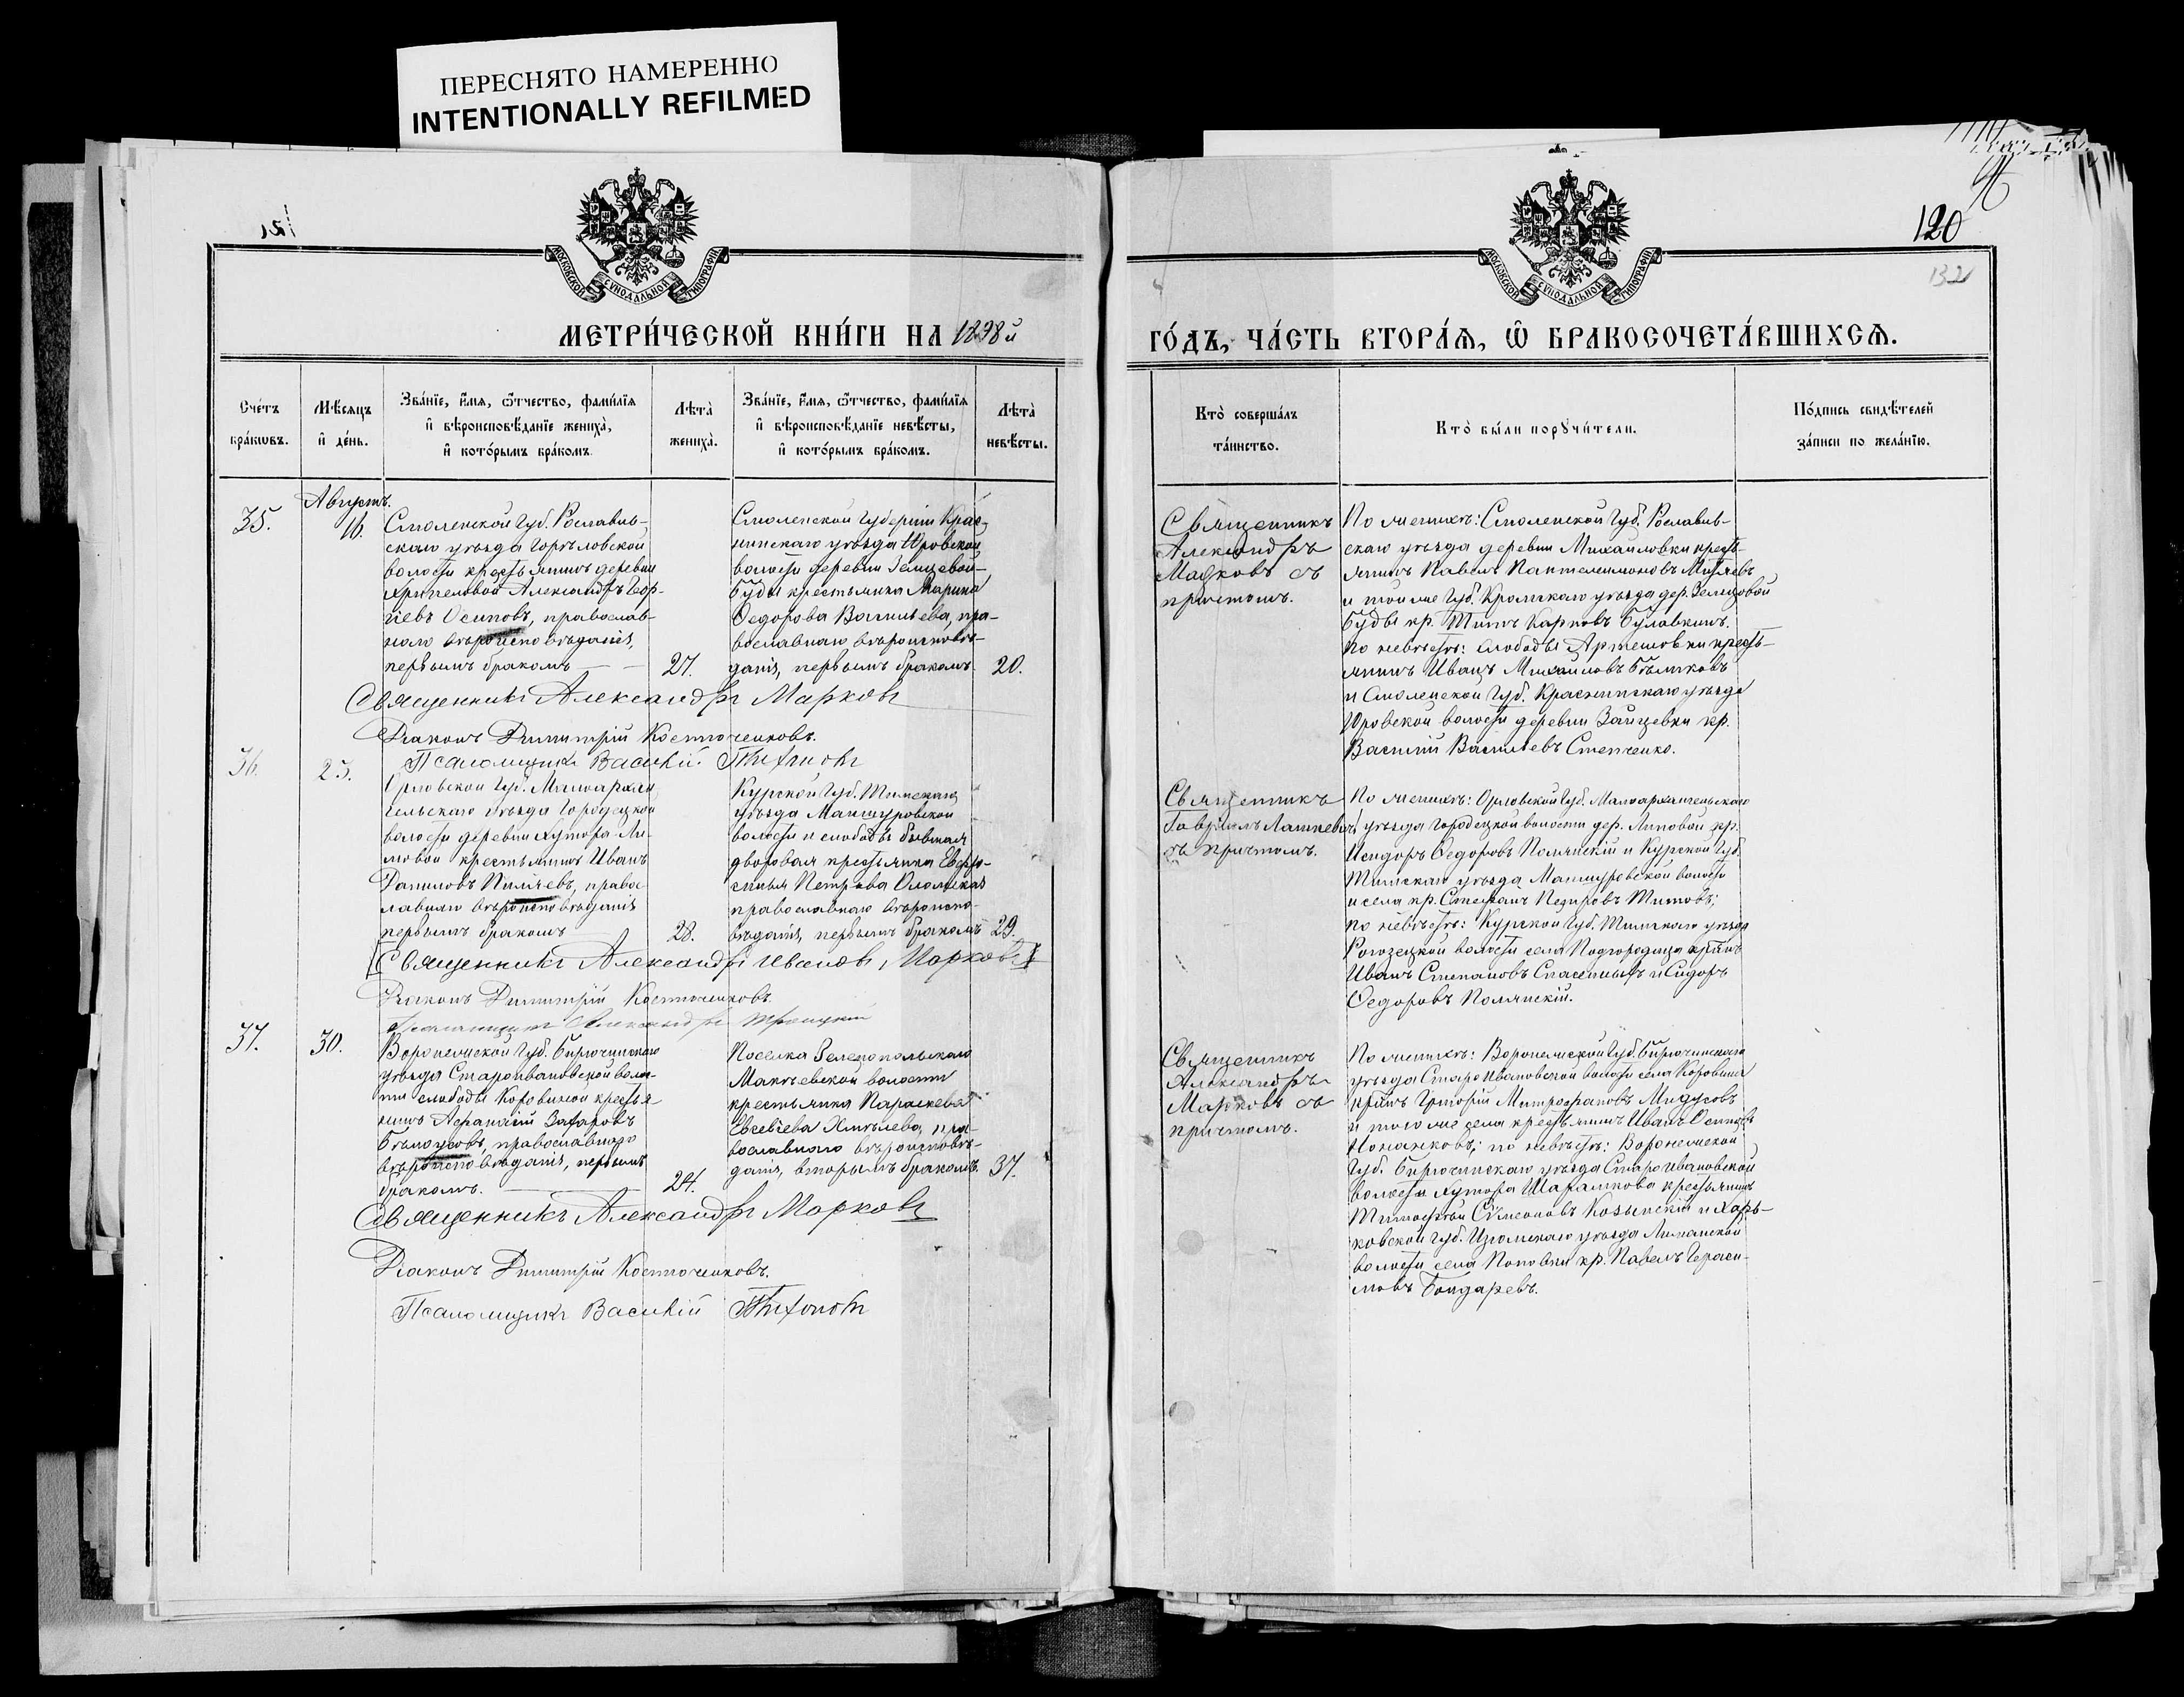 ПЕРЕСНЯТО НАМЕРЕННО
INTENTIONALLY REFILMED
120
132
МОСКОВСКОЙ СѴНОДАЛЬНОЙ ТИПОГРАФІИ
МОСКОВСКОЙ СѴНОДАЛЬНОЙ ТИПОГРАФІИ
МЕТРИ́ЧЕСКОЙ КНИ́ГИ НА 1898й
ГО́ДЪ, ЧА́СТЬ ВТОРА́Ѧ, Ѡ҆ БРАКОСОЧЕТА́ВШИХСѦ.
Сче́тъ бра́кѡвъ.
Мѣ́сѧцъ и҆ де́нь.
Зва́нїе, и҆́мѧ, ѻ҆́тчество, фами́лїѧ
и҆ вѣроисповѣ́данїе жениха̀,
и҆ кото́рымъ бра́комъ.
Лѣта̀ жениха̀.
Зва́нїе, и҆́мѧ, ѻ҆́тчество, фами́лїѧ
и҆ вѣроисповѣ́данїе невѣ́сты,
и҆ кото́рымъ бра́комъ.
Лѣта̀ невѣ́сты.
Кто̀ соверша́лъ
та́инство.
Кто̀ бы́ли порꙋчи́тели.
По́дпись свидѣ́телей
за́писи по жела́нїю.
Августъ.
35.
16.
Смоленской Губ. Рославль-
скаго уѣзда
волости крестьянинъ деревни
Александръ Геор-
гіевъ Осиповъ, православ-
наго вѣроисповѣданія,
первымъ бракомъ
27.
Смоленской Губерніи Крас-
нинскаго уѣзда Юровской
волости деревни Земцевой-
Буды крестьянка Марина
Ѳедорова Васильева, пра-
вославнаго вѣроисповѣ-
данія, первымъ бракомъ.
20.
Священникъ
Александръ
Марковъ съ
причтомъ.
По женихѣ: Смоленской Губ. Рославль-
скаго уѣзда деревни Михайловки кресть-
янинъ Павелъ Пантелеимоновъ
и той же Губ. уѣзда дер. Земцовой
Буды кр. Титъ Карповъ Булавкинъ.
По невѣстѣ: слободы Артемовки кресть-
янинъ Иванъ Михайловъ Бѣликовъ
и Смоленской Губ. Краснинскаго уѣзда
Юровской волости деревни Зайцевки кр.
Василій Васильевъ Степченко.
Священникъ Александръ Марковъ
Діаконъ Димитрій Косточенковъ.
Псаломщикъ Василій Тихоновъ
36.
25.
Орловской Губ. Малоархан-
гельскаго уѣзда Городецкой
волости деревни хутора Ли-
повой крестьянинъ Иванъ
Даниловъ правос-
лавнаго вѣроисповѣданія
первымъ бракомъ
28.
Курской Губ. Тимскаго
уѣзда Мансуровской
волости и слободы бывшая
дворовая крестьянка Евфро-
синья Петрова
православнаго вѣроиспо-
вѣданія, первымъ бракомъ
29.
Священникъ
Гавріилъ
съ причтомъ.
По женихѣ: Орловской Губ. Малоархангельскаго
уѣзда Городецкой волости дер. Липовой кр.
Исидоръ Ѳедоровъ Полянскій и Курской Губ.
Тимскаго уѣзда Мансуровской волости
и села кр. Стефанъ Петровъ Титовъ;
по невѣстѣ: Курской Губ. Тимскаго уѣзда
Рогозецкой волости села
Иванъ Степановъ и Сидоръ
Ѳедоровъ Полянскій.
Священникъ Александръ Ивановъ Марковъ
Діаконъ Димитрій Косточенковъ.
Псаломщикъ Александръ Троицкій
37.
30.
Воронежской Губ. Бирюченскаго
уѣзда Староивановской волос-
ти слободы Коровиной крестья-
нинъ Аѳанасій Захаровъ
Бѣлоусовъ, православнаго
вѣроисповѣданія, первымъ
бракомъ.
24.
Поселка Зеленопольскаго
Макѣевской волости
крестьянка Параскева
Евсевіева Хмѣлева, пра-
вославнаго вѣроисповѣ-
данія, вторымъ бракомъ.
37.
Священникъ
Александръ
Марковъ съ
причтомъ.
По женихѣ: Воронежской Губ. Бирюченскаго
уѣзда Староивановской волости села Коровина
Григорій Митрофановъ
и того же села крестьянинъ Иванъ Осиповъ
по невѣстѣ: Воронежской
Губ. Бирюченскаго уѣзда Староивановской
волости хутора Шарапкова крестьянинъ
Тимофей Сѵмеоновъ и Харь-
ковской Губ. Изюмскаго уѣзда Лиманской
волости села Поповки кр. Павелъ Гераси-
мовъ Бондаревъ.
Священникъ Александръ Марковъ
Діаконъ Димитрій Косточенковъ.
Псаломщикъ Василій Тихоновъ